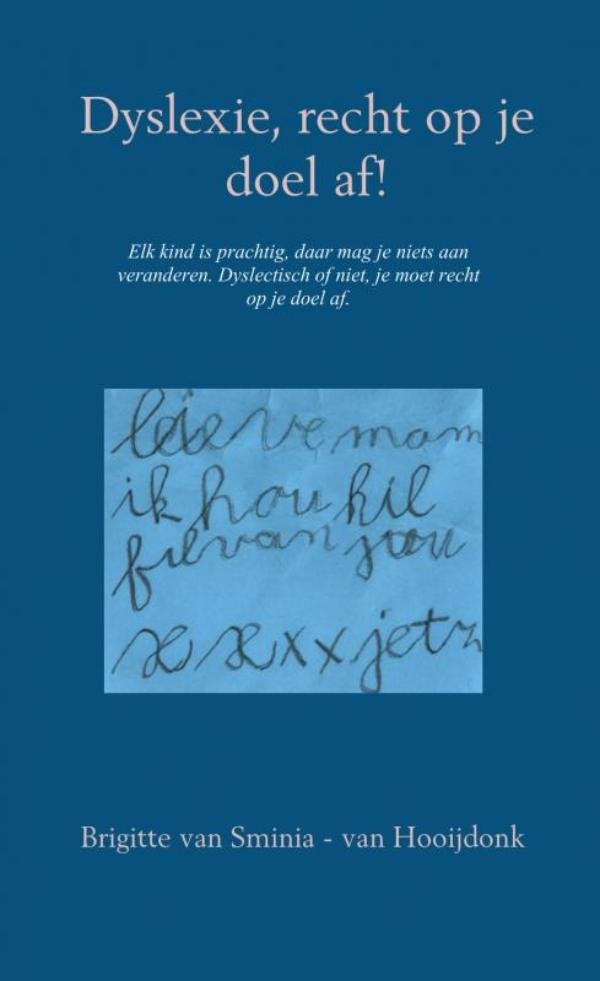 Dyslexie, recht op je
doel af!
Elk kind is prachtig, daar mag je niets aan
veranderen. Dyslectisch of niet, je moet recht
op je doel af.
lieve mam
ik hou hil
fiel van jou
xxxx jet
Brigitte van Sminia - van Hooijdonk